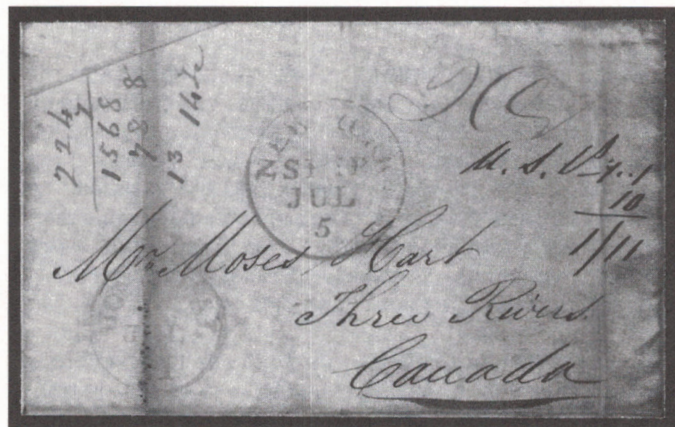 224
7
1568
78 8
13 14
NEW YORK
SHIP
JUL
5
U. S.
10
1/11
Mr. Moses Hart
Three Rivers
Canada